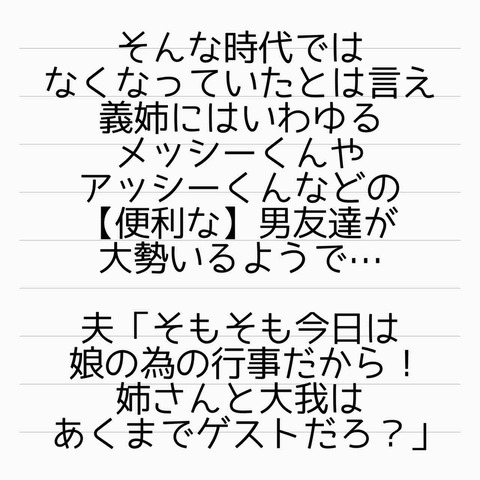 そんな時代では
なくなっていたとは言え
義姉にはいわゆる
メッシーくんや
アッシーくんなどの
【便利な】男友達が
大勢いるようで…
夫「そもそも今日は
娘の為の行事だから！
姉さんと大我は
あくまでゲストだろ？」